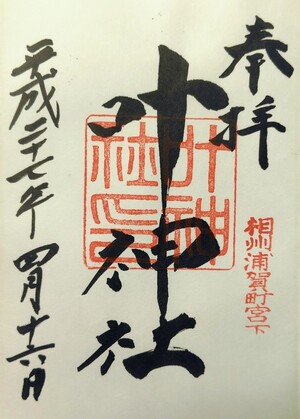 奉拝
相州浦賀町宮下
叶神社
叶神社印
平成二十七年四月十六日